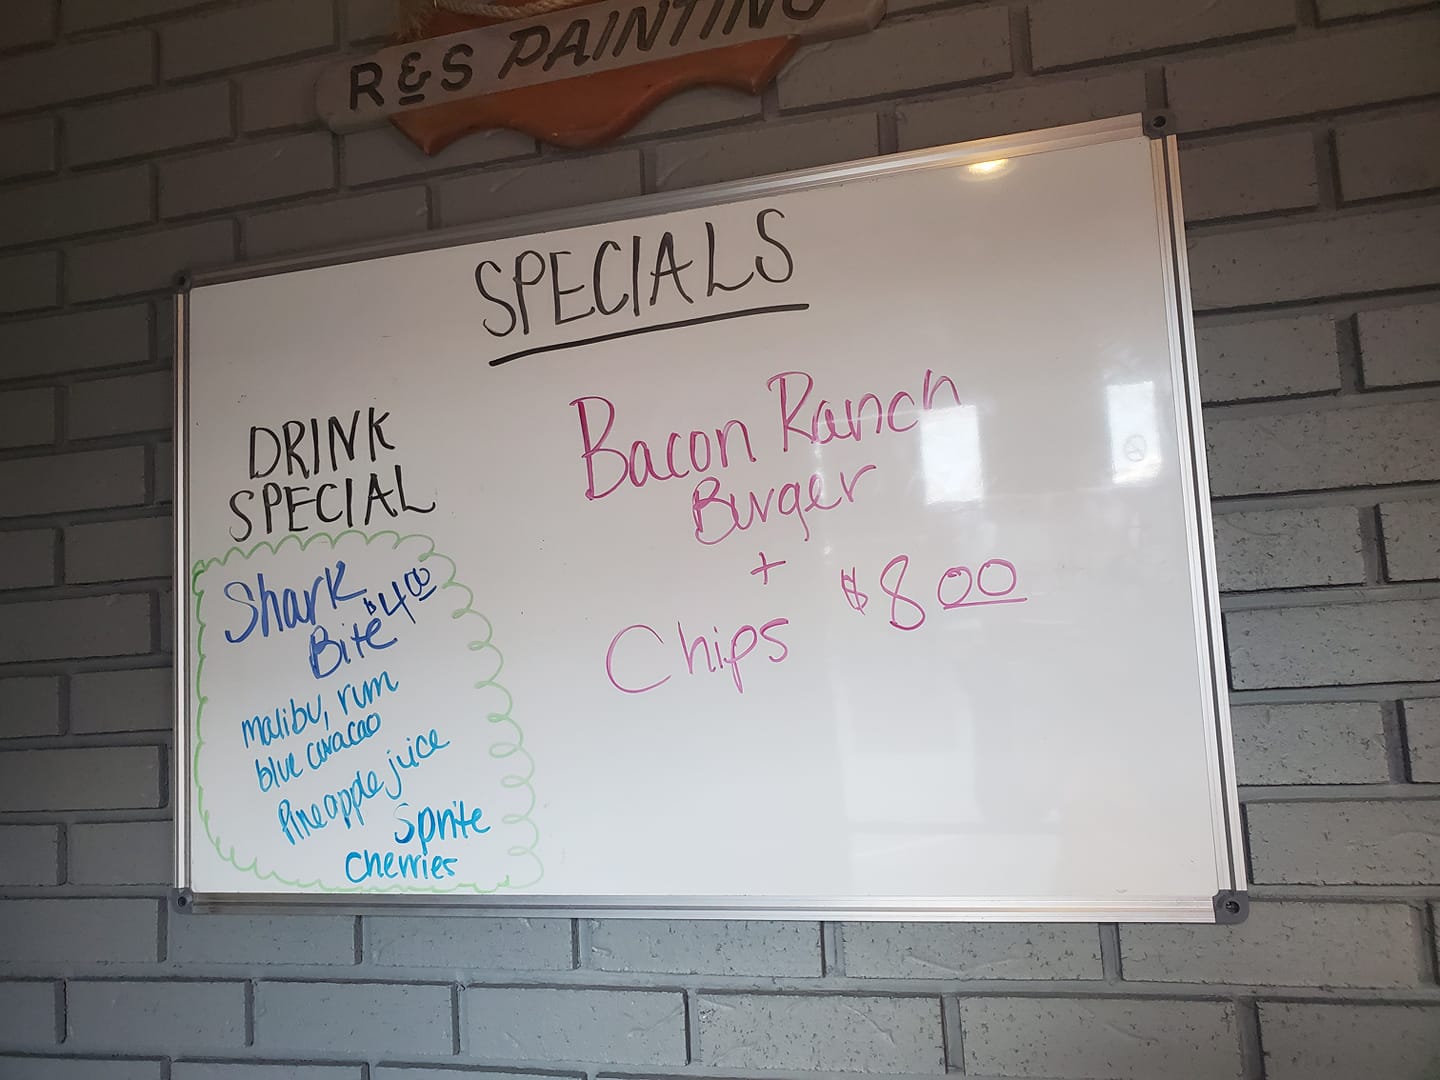 R&S PAINTING
SPECIALS
DRINK
SPECIAL
Shark
Bite $4.00
malibu, rum
blue curacao
Pineapple juice
Sprite
Cherries
Bacon Ranch
Burger
+
Chips $8.00